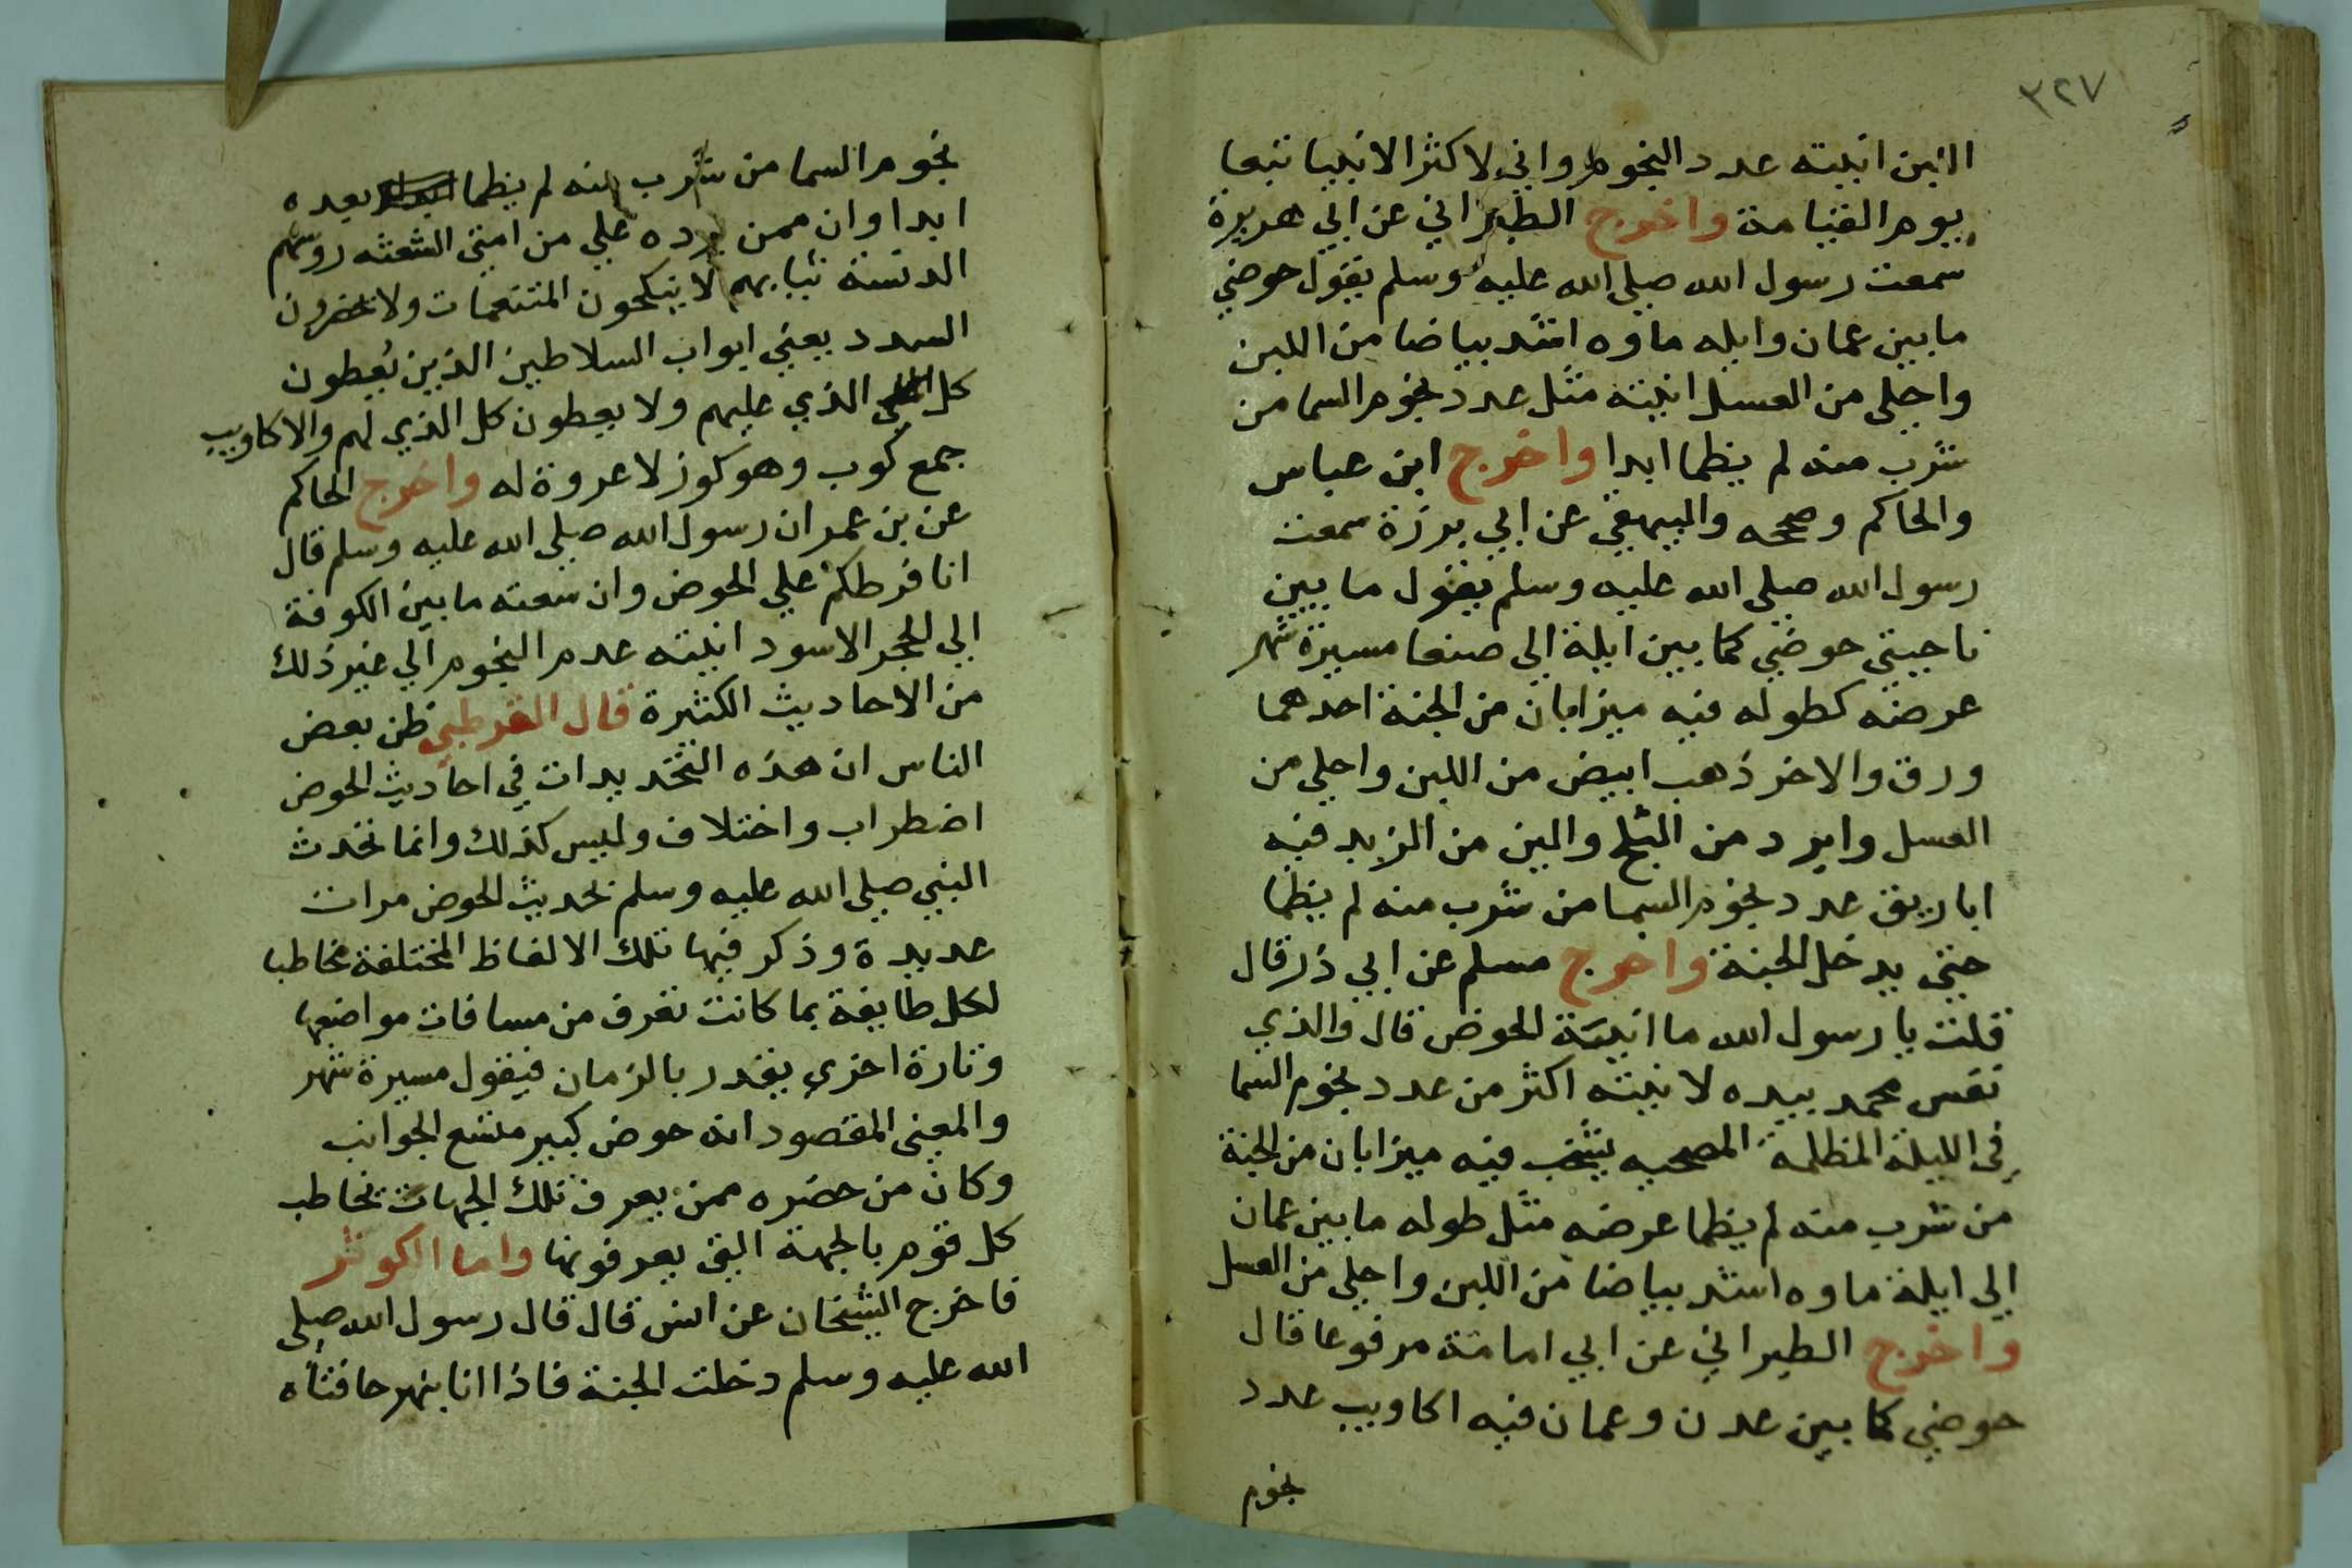 ٣٢٧
اللبن انيته عدد النجوم واني لاكثر الانبيا تبعا
يوم القيامة واخرج الطبراني عن ابي هريرة
سمعت رسول الله صلي الله عليه وسلم يقول حوضي
ما بين عمان وايله ماوه اشد بياضا من اللبن
واحلي من العسل انيته مثل عدد نجوم السما من
شرب منه لم يظما ابدا واخرج ابن عباس
والحاكم وصححه والبيهقي عن ابي برزة سمعت
رسول الله صلي الله عليه وسلم يقول ما بين
ناحيتي حوضي كما بين ايلة الي صنعا مسيرة شهر
عرضه كطوله فيه ميزابان من الجنة احدهما
ورق والاخر ذهب ابيض من اللبن واحلي من
العسل وابرد من الثلج والين من الزبد فيه
اباريق عدد نجوم السما من شرب منه لم يظما
حتي يدخل الجنة واخرج مسلم عن ابي ذر قال
قلت يا رسول الله ما انية الحوض قال والذي
نفس محمد بيده لانيته اكثر من عدد نجوم السما
في الليلة المظلمة المصحيه يشخب فيه ميزابان من الجنة
من شرب منه لم يظما عرضه مثل طوله ما بين عمان
الي ايلة ماوه اشد بياضا من اللبن واحلي من العسل
واخرج الطبراني عن ابي امامة مرفوعا قال
حوضي كما بين عدن وعمان فيه اكاويب عدد
نجوم
نجوم السما من شرب منه لم يظما بعده
ابدا وان ممن يرده علي من امتي الشعثه روسهم
الدنسة ثيابهم لا ينكحون المتنعمات ولا يحضرون
السدد يعني ابواب السلاطين الذين يعطون
كل الذي عليهم ولا يعطون كل الذي لهم والاكاويب
جمع كوب وهو كوز لا عروة له واخرج الحاكم
عن بن عمر ان رسول الله صلي الله عليه وسلم قال
انا فرطكم علي الحوض وان سعته ما بين الكوفة
الي الحجر الاسود انيته عدم النجوم الي غير ذلك
من الاحاديث الكثيرة قال القرطبي ظن بعض
الناس ان هذه التحديدات في احاديث الحوض
اضطراب واختلاف وليس كذلك وانما تحدث
النبي صلي الله عليه وسلم بحديث الحوض مرات
عديدة وذكر فيها تلك الالفاظ المختلفة مخاطبا
لكل طايفة بما كانت تعرف من مسافات مواضعها
وتارة اخري يقدر بالزمان فيقول مسيرة شهر
والمعني المقصود انه حوض كبير متسع الجوانب
وكان من حضره ممن يعرف تلك الجهات يخاطب
كل قوم بالجهة التي يعرفونها واما الكوثر
فاخرج الشيخان عن انس قال قال رسول الله صلي
الله عليه وسلم دخلت الجنة فاذا انا بنهر حافتاه